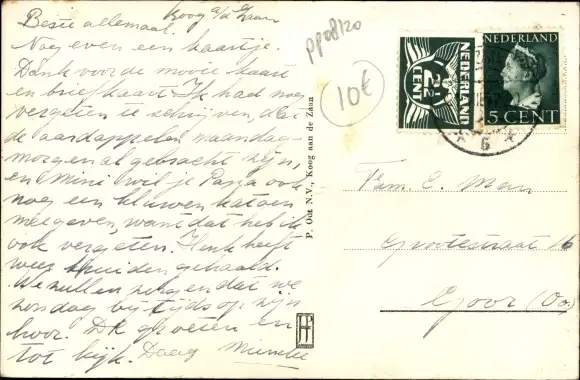 Koog a/d Zaan
Beste allemaal.
Nog even een kaartje.
Dank voor de mooie kaart
en briefkaart. Ik had nog
vergeten te schrijven, dat
de aardappelen maandag-
morgen al gebracht zijn,
en Mini wil je Papa ook
nog een kluwen katoen
meegeven, want dat heb ik
ook vergeten. Henk heeft
weer kruiden gehaald.
We zullen zorgen dat we
zondag bij tijds op zijn
hoor. De groeten en
tot kijk. Daag
P. Out N.V., Koog aan de Zaan
pp08120
10€
NEDERLAND
2½
CENT
NEDERLAND
5 CENT
5
Fam. C.
Grootestraat 16
Goor (Ov)